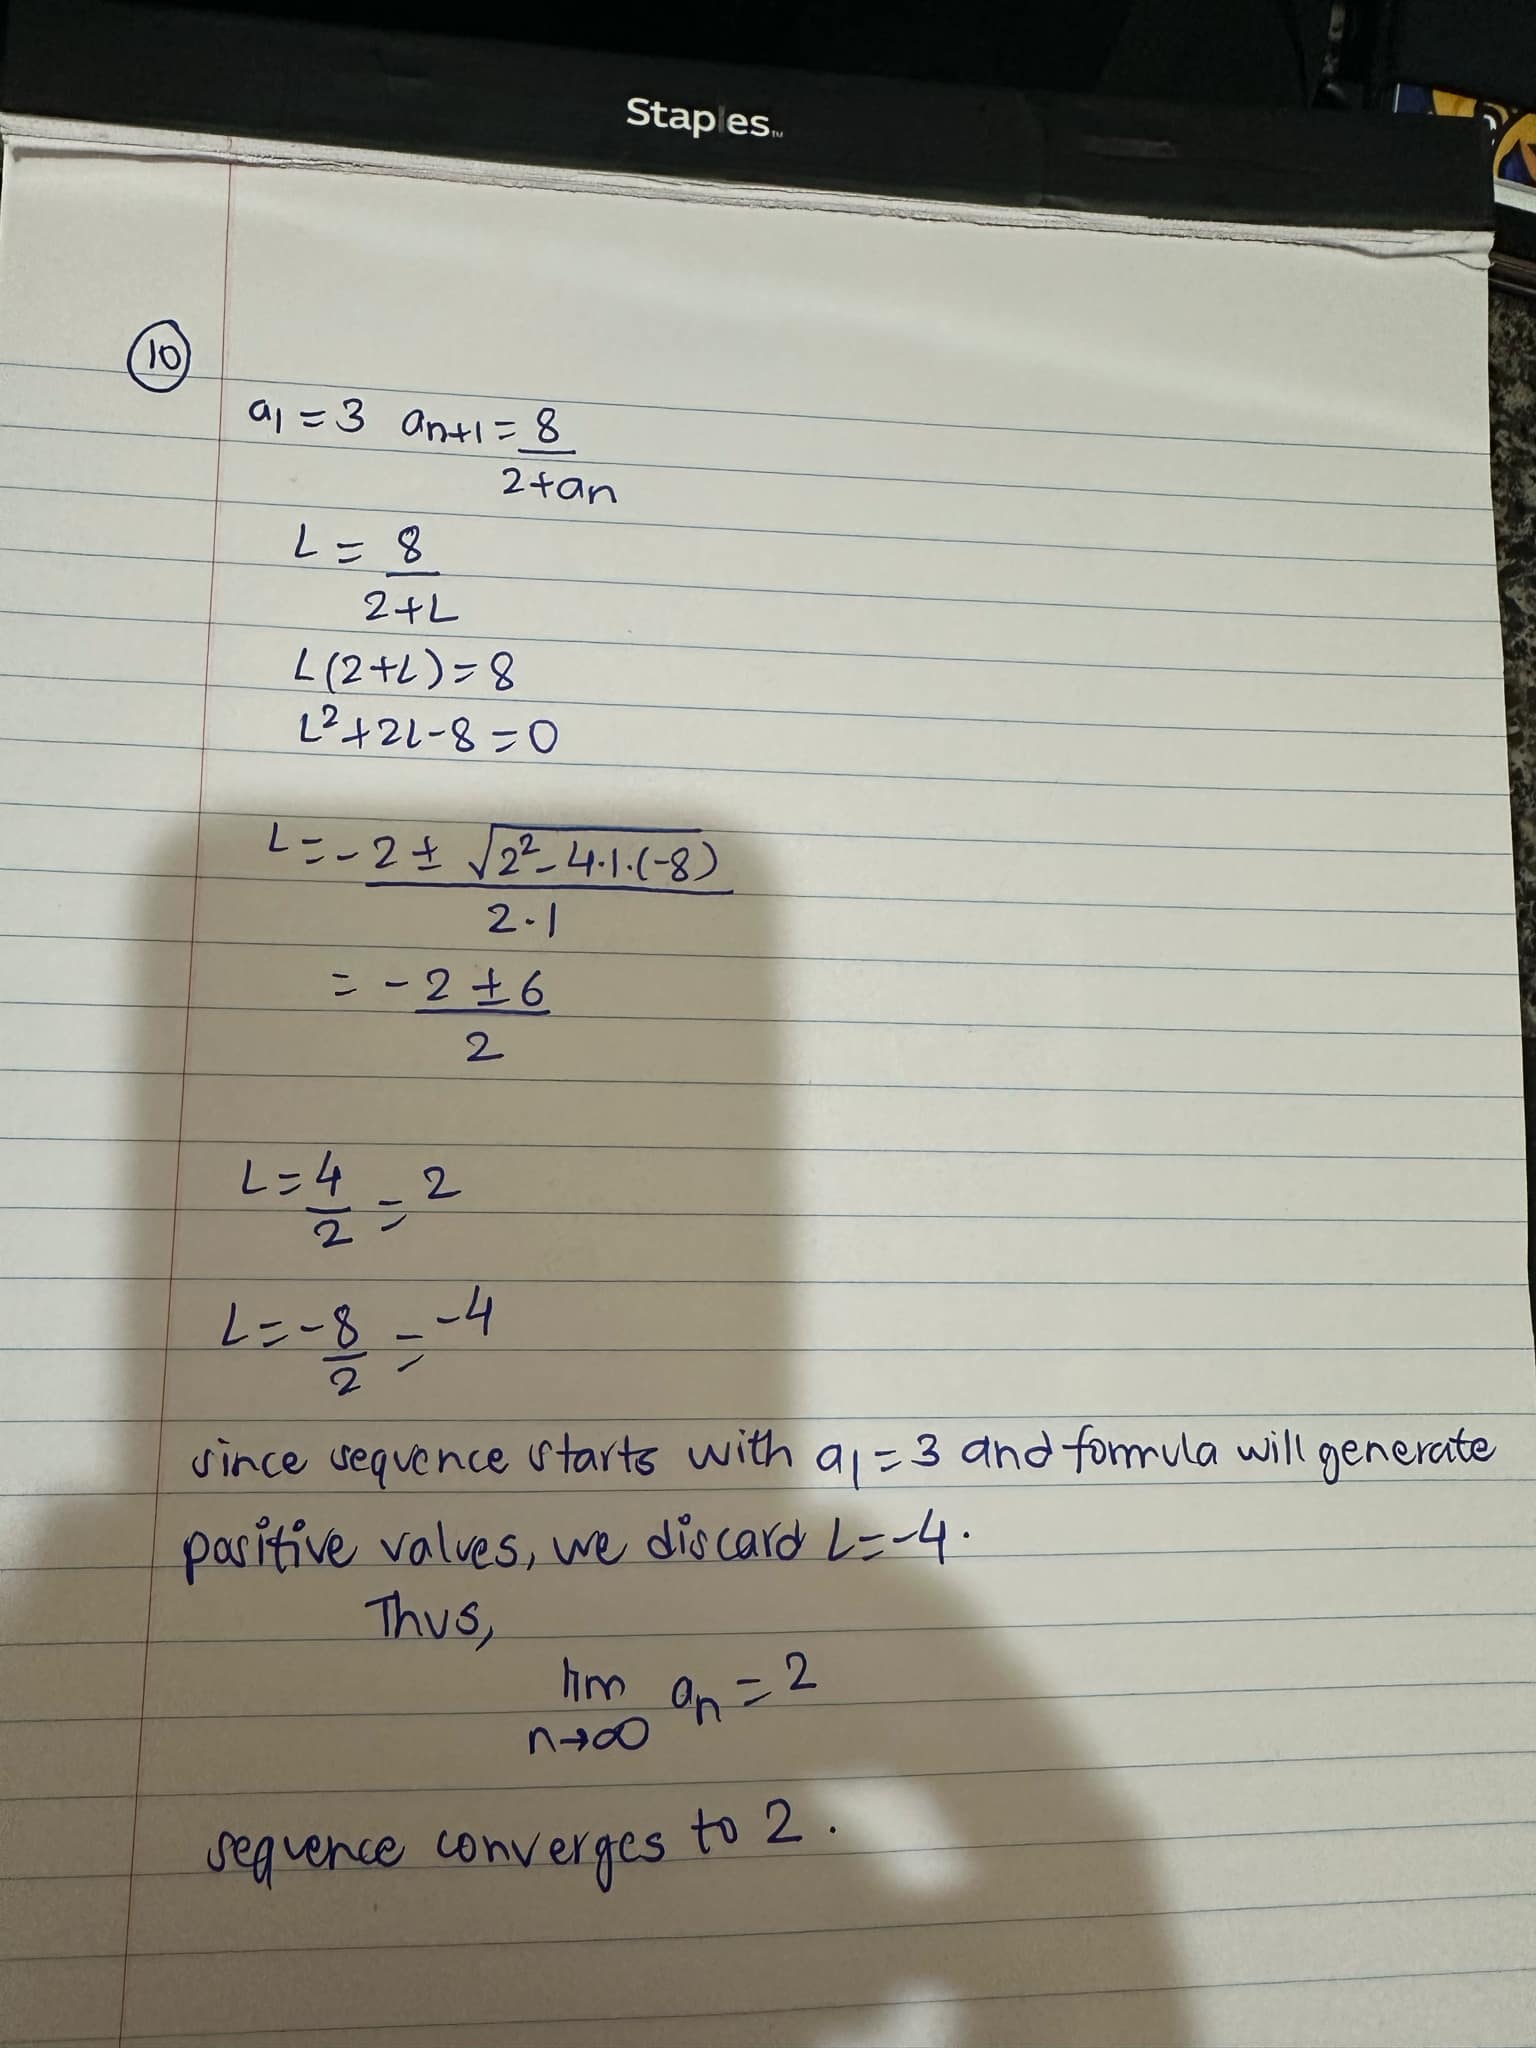 Staples™
10
a₁ = 3 aₙ₊₁ = 8
2+aₙ
L = 8
2+L
L(2+L) = 8
L²+2L-8 = 0
L = -2 ± √2²-4·1·(-8)
2·1
= -2 ± 6
2
L = 4 = 2
2
L = -8 = -4
2
since sequence starts with a₁ = 3 and formula will generate
positive values, we discard L = -4.
Thus,
lim aₙ = 2
n→∞
sequence converges to 2.